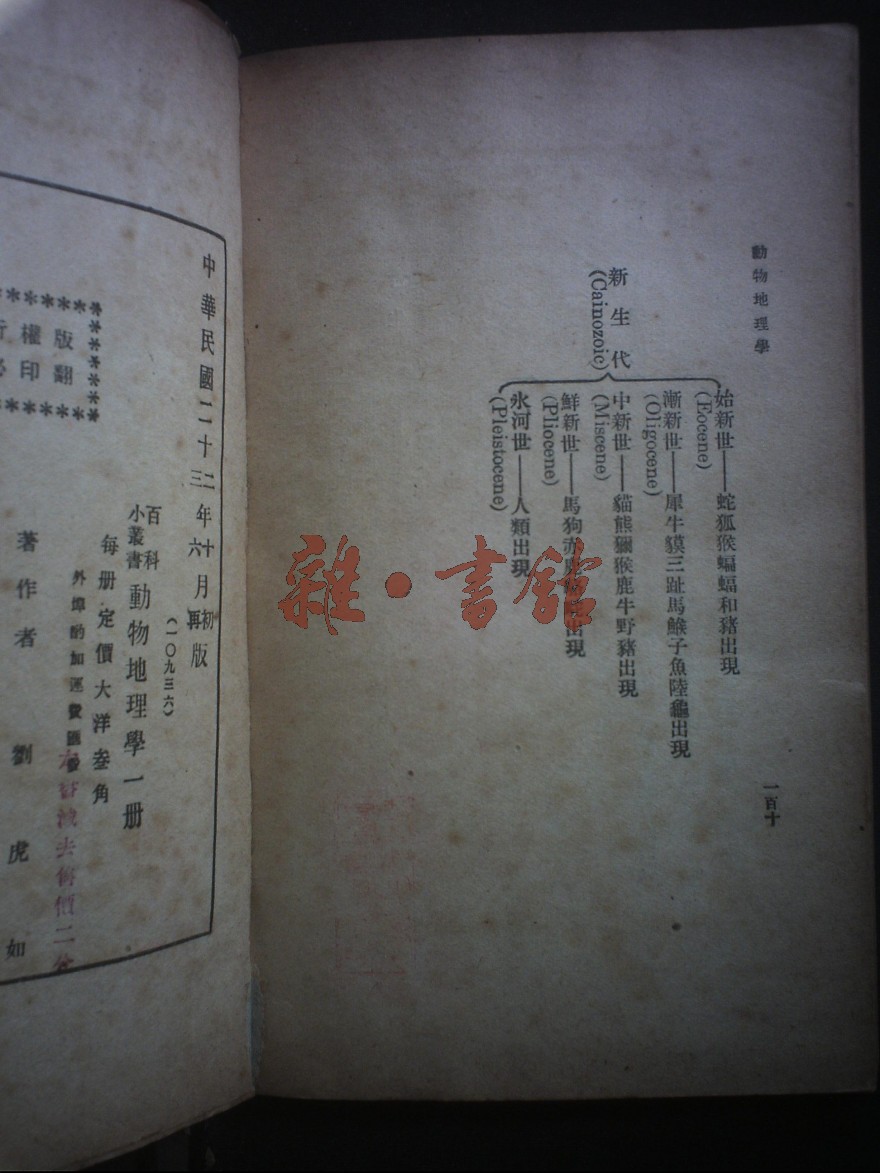 動物地理學
新生代
(Cainozoic)
始新世——蛇狐猴蝙蝠和豬出現
(Eocene)
漸新世——犀牛貘三趾馬鯸子魚陸龜出現
(Oligocene)
中新世——貓熊獺猴鹿牛野豬出現
(Miscene)
鮮新世——馬狗赤出現
(Pliocene)
氷河世——人類出現
(Pleistocene)
一百十
雜·書館
中華民國二十二年十月初版
三 六 再
(一〇九三六)
百科
小叢書
動物地理學一册
每册定價大洋叁角
外埠酌加運費匯費
版權
翻印
著作者 劉虎如
去售價二分